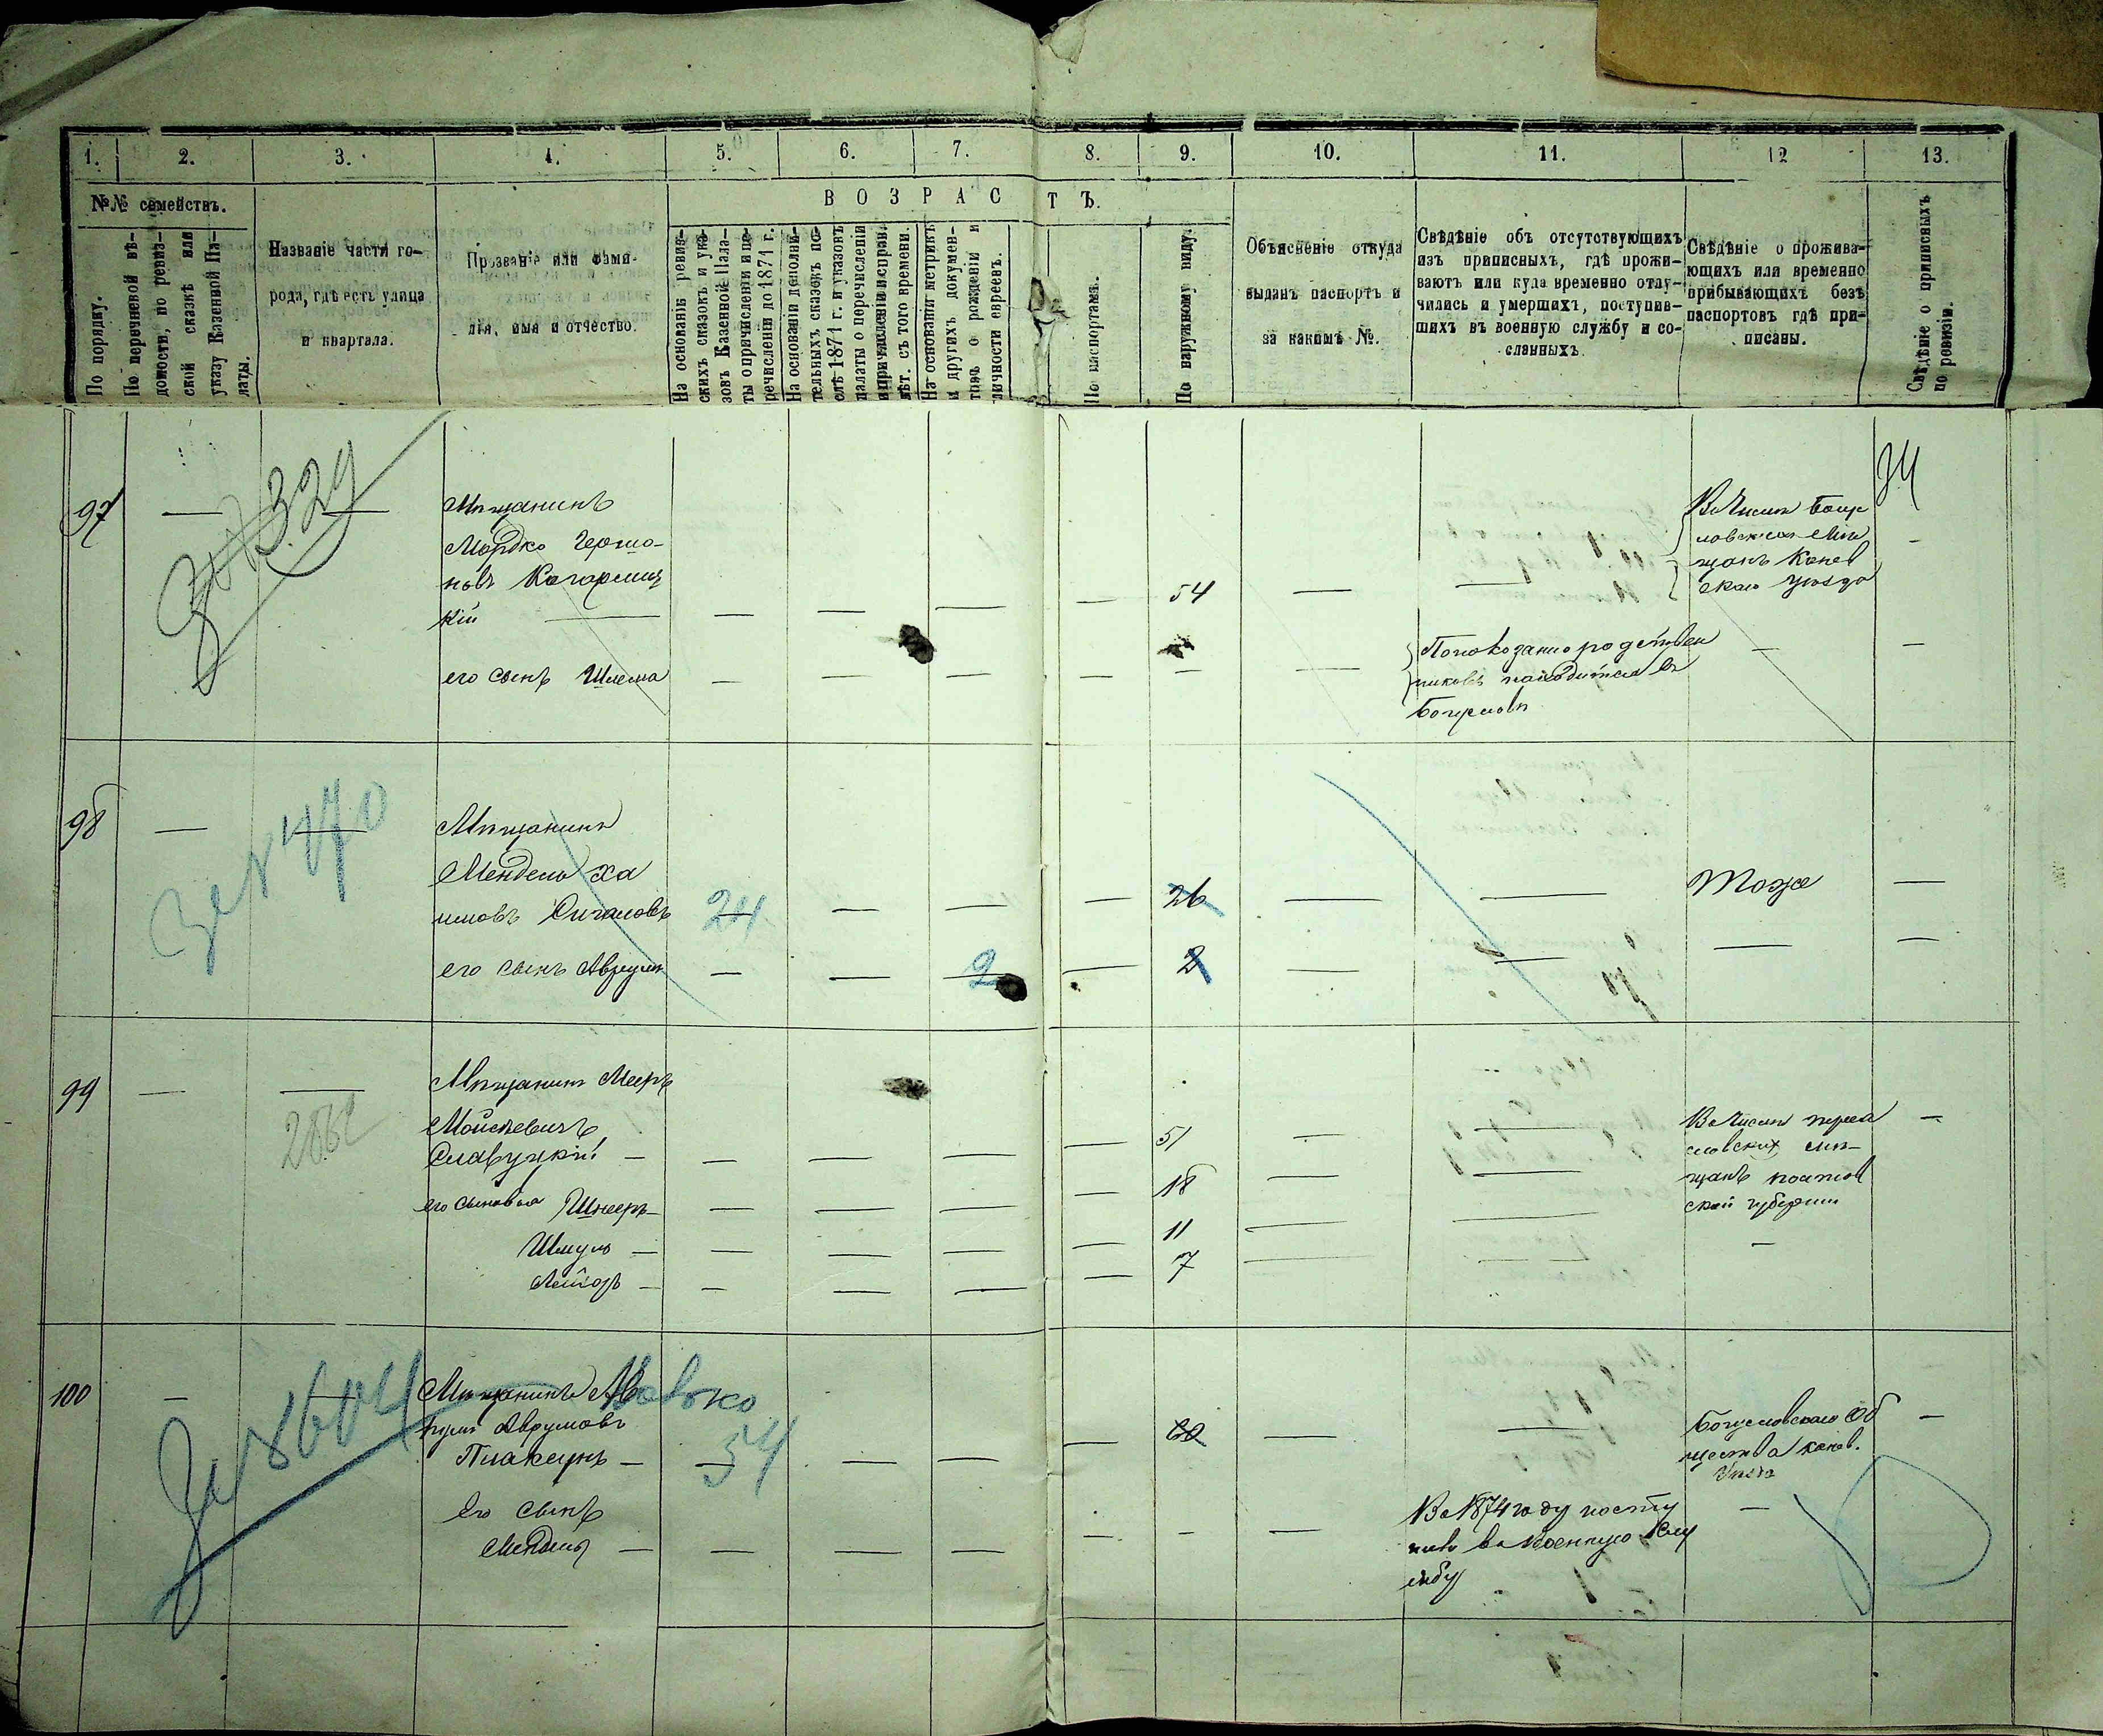 1.
2.
3.
4.
5.
6.
7.
8.
9.
10.
11.
12
13.
№№ семействъ.
ВОЗРАСТЪ.
По порядку.
По перечневой вѣ-
домости, по ревиз-
ской сказкѣ или
указу Казенной Па-
латы.
Названіе части го-
рода, гдѣ есть улица
и квартала.
Прозваніе или фами-
лія, имя и отчество.
На основаніѣ ревиз-
скихъ сказокъ и ука-
зовъ Казенной Пала-
ты о причисленіи и пе-
речисленіи до 1871 г.
На основаніи дополни-
тельныхъ сказокъ по-
слѣ 1871 г. и указовъ
палаты о перечисленіи
и причисленіи исправ.
лѣт. съ того времени.
На основаніи метрикъ
и другихъ докумен-
товъ о рожденіи и
личности евреевъ.
По паспортамъ.
По наружному виду.
Объясненіе откуда
выданъ паспортъ и
за какимъ №.
Свѣдѣніе объ отсутствующихъ
изъ приписныхъ, гдѣ прожи-
ваютъ или куда временно отлу-
чились и умершихъ, поступив-
шихъ въ военную службу и со-
сланныхъ.
Свѣдѣніе о прожива-
ющихъ или временно
прибывающихъ безъ
паспортовъ гдѣ при-
писаны.
Свѣдѣніе о приписныхъ
по ревизіи.
97
329
Мѣщанинъ
Мордко Гершо-
новъ
кій
54
его сынъ Шлема
Въ числѣ Богу
славскихъ Мѣ
щанъ Канев
скаго уѣзда
По показанію родствен
никовъ находится въ
Богуславѣ
98
470
Мѣщанинъ
Мендель Ха
имовъ Сигаловъ
24
26
Тоже
его сынъ Аврумъ
2
2
99
Мѣщанинъ Мееръ
Моисѣевичъ
Славуцкій
51
его сыновья Шнееръ
18
Шмуль
11
Лейзоръ
7
Въ числѣ переа
славскихъ мѣ-
щанъ полтав
ской губерніи
100
За № 604
Мѣщанинъ Ав
румъ Аврумовъ
Плаксунъ
54
60
Богуславскаго Об
щества канев.
Уѣзда
Его сынъ
Мендель
Въ 1874 году посту
пилъ въ военную слу
жбу